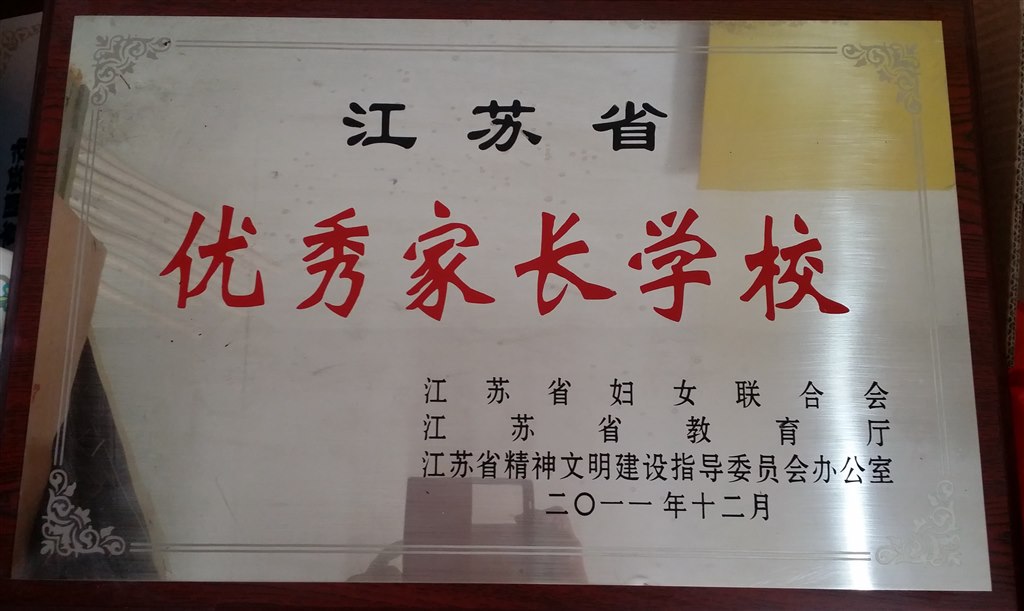 江苏省
优秀家长学校
江苏省妇女联合会
江苏省教育厅
江苏省精神文明建设指导委员会办公室
二〇一一年十二月